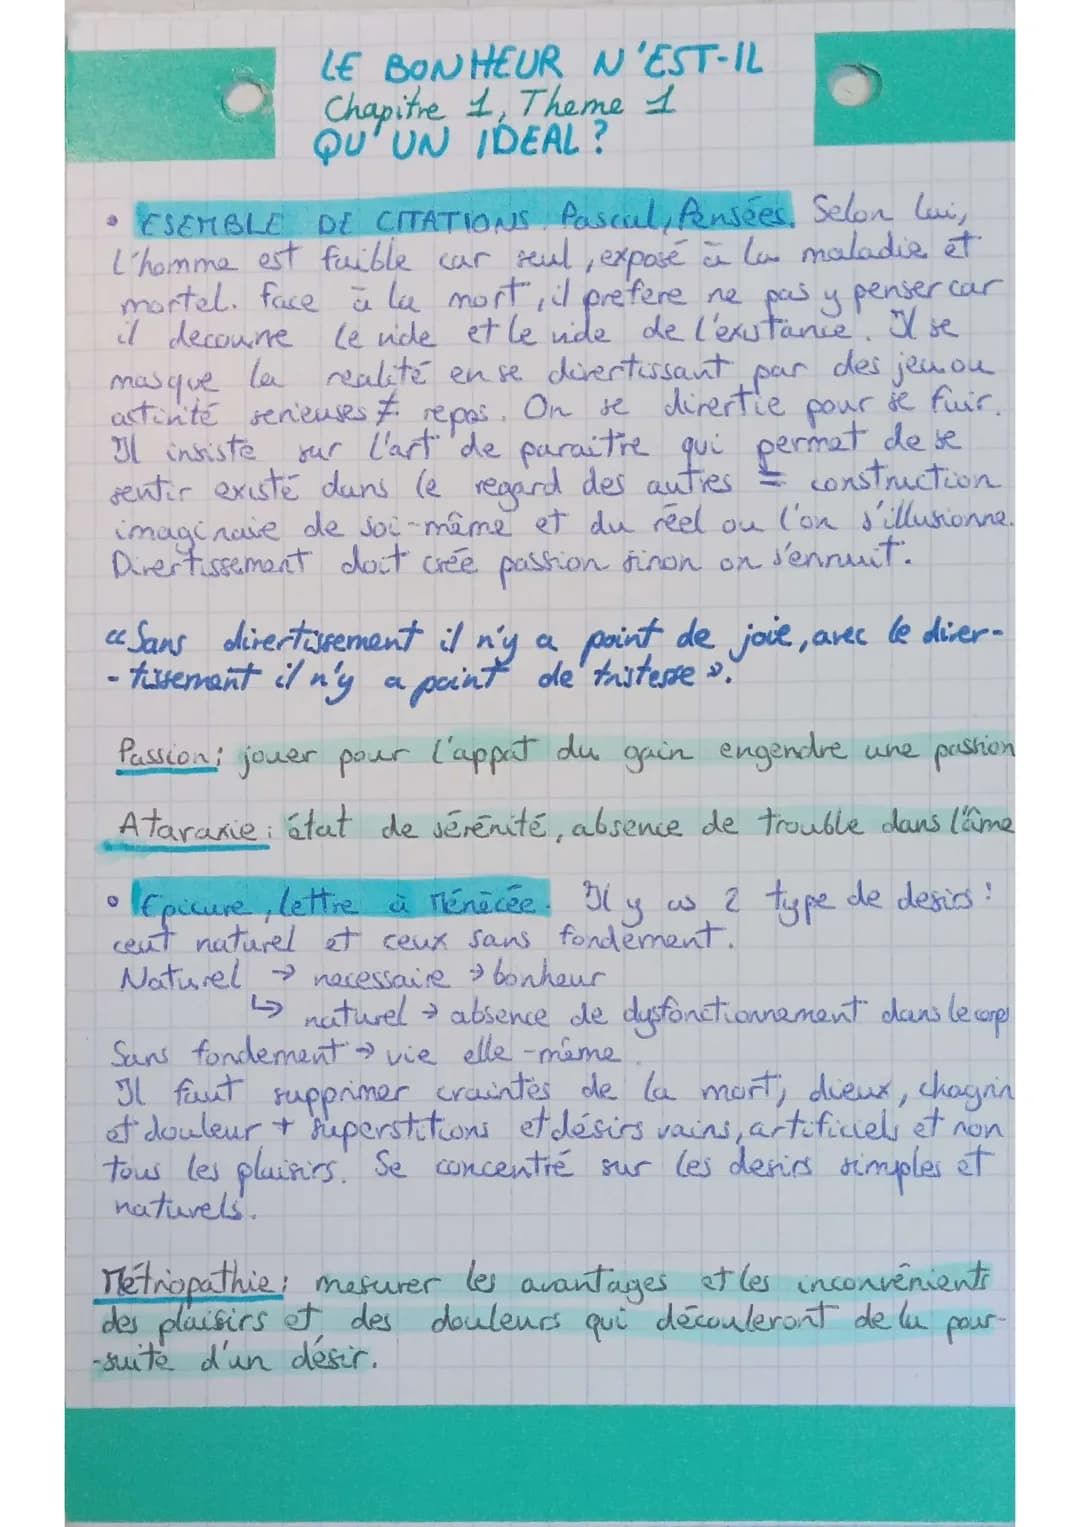 LE BONHEUR N'EST-IL
Chapitre 1, Theme 1
QU'UN IDEAL ?
• ESEMBLE DE CITATIONS. Pascal, Pensées. Selon lui,
l'homme est faible car seul, exposé à la maladie et
mortel. Face à la mort, il prefere ne pas y penser car
il decouvre le vide et le vide de l'existance. Il se
masque la realité en se divertissant par des jeu ou
activité serieuses ≠ repos. On se divertie pour se fuir.
Il insiste sur l'art de paraitre qui permet de se
sentir existé dans le regard des autres = construction
imaginaie de soi-même et du réel ou l'on s'illusionne.
Divertissement doit créé passion sinon on s'ennuit.
« Sans divertissement il n'y a point de joie, avec le diver-
-tissement il n'y a point de tristesse ».
Passion : jouer pour l'appat du gain engendre une passion
Ataraxie : état de sérénité, absence de trouble dans l'âme
• Epicure, lettre à Ménécée. Il y as 2 type de desirs :
ceut naturel et ceux sans fondement.
Naturel → necessaire → bonheur
↳ naturel → absence de dysfonctionnement dans le corps
Sans fondement → vie elle-même.
Il faut supprimer craintes de la mort, dieux, chagrin
et douleur + superstitions et désirs vains, artificiels et non
tous les plaisirs. Se concentré sur les desirs simples et
naturels.
Métriopathie : mesurer les avantages et les inconvénients
des plaisirs et des douleurs qui découleront de la pour-
-suite d'un désir.